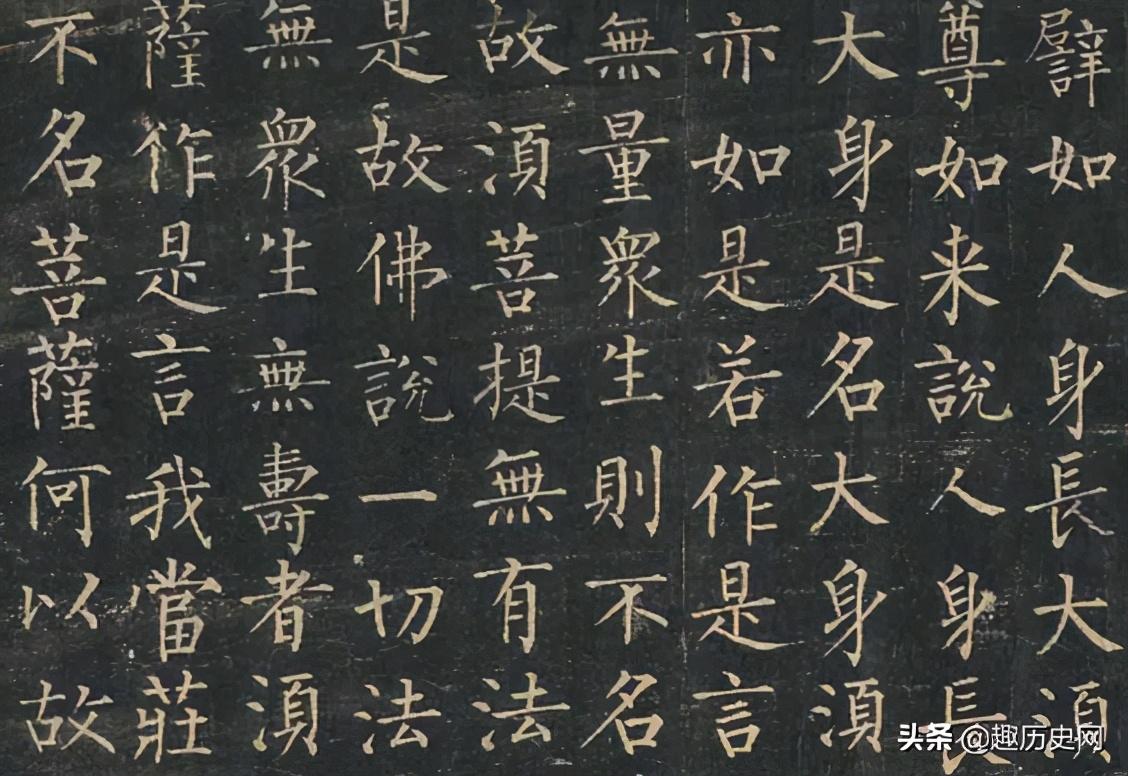 譬如人身長大湏
尊如来說人身長
大身是名大身湏
亦如是若作是言
無量衆生則不名
故湏菩提無有法
是故佛說一切法
無衆生無壽者湏
薩作是言我當莊
不名菩薩何以故
头条 @趣历史网